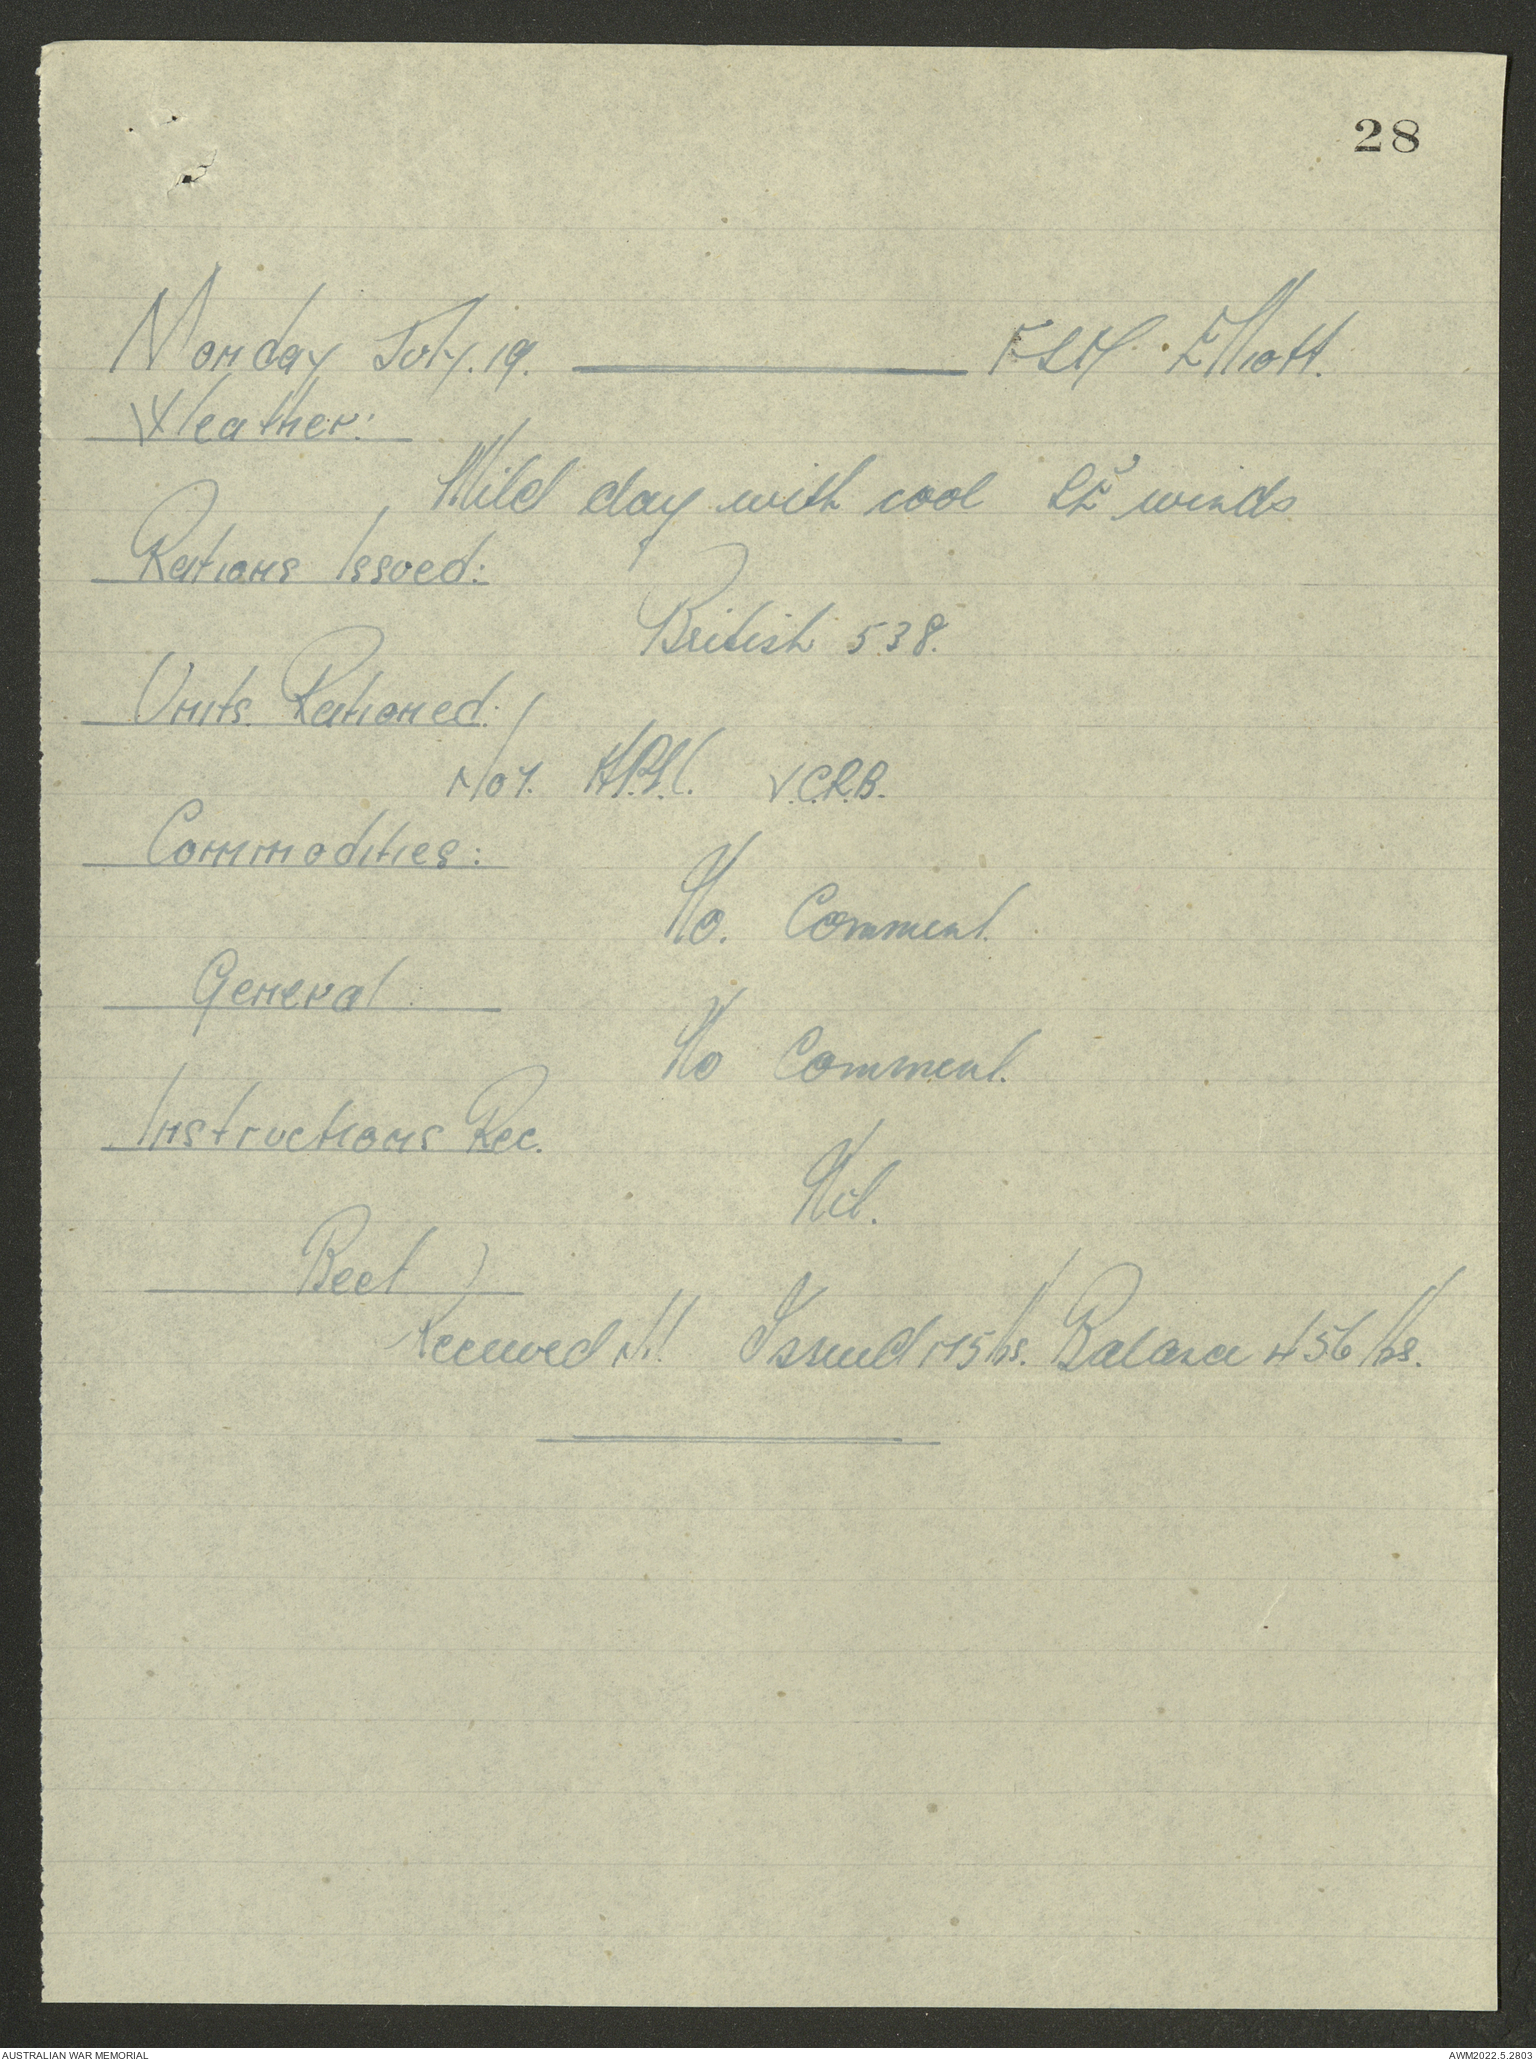 28
Monday July. 19. FSD Elliott.
Weather:
Mild day with cool SE' winds
Rations Issued:
British 538.
Units Rationed:
V.C.R.B.
Commodities:
No. Comment.
General
No Comment.
Instructions Rec.
Nil.
Beef
Received Nil Issued 175 lbs. Balance 456 lbs.
AUSTRALIAN WAR MEMORIAL
AWM2022.5.2803